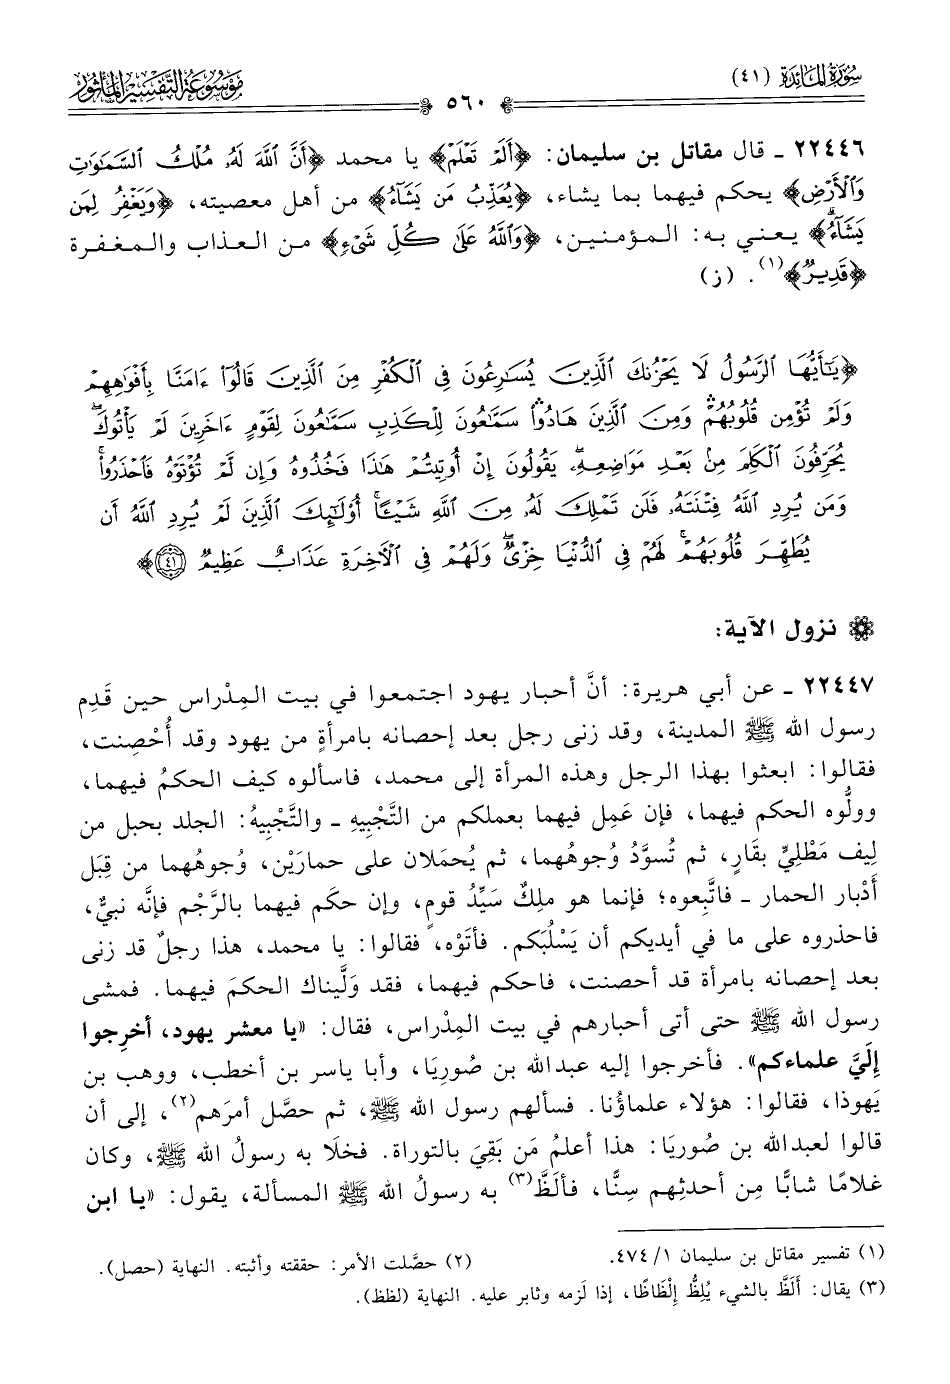 سُورَةُ المَائِدَة (٤١)
٥٦٠
مَوْسُوعَةُ التَّفْسِيرِ المَأْثُور
٢٢٤٤٦ ـ قال مقاتل بن سليمان: ﴿أَلَمْ تَعْلَمْ﴾ يا محمد ﴿أَنَّ ٱللَّهَ لَهُۥ مُلْكُ ٱلسَّمَٰوَٰتِ
وَٱلْأَرْضِ﴾ يحكم فيهما بما يشاء، ﴿يُعَذِّبُ مَن يَشَآءُ﴾ من أهل معصيته، ﴿وَيَغْفِرُ لِمَن
يَشَآءُۗ﴾ يعني به: المؤمنين، ﴿وَٱللَّهُ عَلَىٰ كُلِّ شَىْءٍ﴾ من العذاب والمغفرة
﴿قَدِيرٌ﴾(١). (ز)
﴿يَٰٓأَيُّهَا ٱلرَّسُولُ لَا يَحْزُنكَ ٱلَّذِينَ يُسَٰرِعُونَ فِى ٱلْكُفْرِ مِنَ ٱلَّذِينَ قَالُوٓا۟ ءَامَنَّا بِأَفْوَٰهِهِمْ
وَلَمْ تُؤْمِن قُلُوبُهُمْۛ وَمِنَ ٱلَّذِينَ هَادُوا۟ۛ سَمَّٰعُونَ لِلْكَذِبِ سَمَّٰعُونَ لِقَوْمٍ ءَاخَرِينَ لَمْ يَأْتُوكَۖ
يُحَرِّفُونَ ٱلْكَلِمَ مِنۢ بَعْدِ مَوَاضِعِهِۦۖ يَقُولُونَ إِنْ أُوتِيتُمْ هَٰذَا فَخُذُوهُ وَإِن لَّمْ تُؤْتَوْهُ فَٱحْذَرُوا۟ۚ
وَمَن يُرِدِ ٱللَّهُ فِتْنَتَهُۥ فَلَن تَمْلِكَ لَهُۥ مِنَ ٱللَّهِ شَيْـًٔاۚ أُو۟لَٰٓئِكَ ٱلَّذِينَ لَمْ يُرِدِ ٱللَّهُ أَن
يُطَهِّرَ قُلُوبَهُمْۚ لَهُمْ فِى ٱلدُّنْيَا خِزْىٌۖ وَلَهُمْ فِى ٱلْـَٔاخِرَةِ عَذَابٌ عَظِيمٌ ٤١﴾
نزول الآية:
٢٢٤٤٧ ـ عن أبي هريرة: أنَّ أحبار يهود اجتمعوا في بيت المِدْراس حين قَدِم
رسول الله ﷺ المدينة، وقد زنى رجل بعد إحصانه بامرأةٍ من يهود وقد أُحْصِنت،
فقالوا: ابعثوا بهذا الرجل وهذه المرأة إلى محمد، فاسألوه كيف الحكمُ فيهما،
وولُّوه الحكم فيهما، فإن عَمِل فيهما بعملكم من التَّجْبِيهِ ـ والتَّجْبِيهُ: الجلد بحبل من
لِيف مَطْلِيٍّ بقَارٍ، ثم تُسوَّدُ وُجوهُهما، ثم يُحمَلان على حمارَيْن، وُجوهُهما من قِبَل
أَدْبار الحمار ـ فاتَّبِعوه؛ فإنما هو ملِكٌ سَيِّدُ قومٍ، وإن حكَم فيهما بالرَّجْم فإنَّه نبيٌّ،
فاحذروه على ما في أيديكم أن يَسْلُبَكم. فأتَوْه، فقالوا: يا محمد، هذا رجلٌ قد زنى
بعد إحصانه بامرأة قد أحصنت، فاحكم فيهما، فقد وَلَّيناك الحكمَ فيهما. فمشى
رسول الله ﷺ حتى أتى أحبارهم في بيت المِدْراس، فقال: «يا معشر يهود، أخرِجوا
إلَيَّ علماءكم». فأخرجوا إليه عبدالله بن صُورِيَا، وأبا ياسر بن أخطب، ووهب بن
يَهوذا، فقالوا: هؤلاء علماؤُنا. فسألهم رسول الله ﷺ، ثم حصَّل أمرَهم(٢)، إلى أن
قالوا لعبدالله بن صُوريَا: هذا أعلمُ مَن بَقِيَ بالتوراة. فخلَا به رسولُ الله ﷺ، وكان
غلامًا شابًّا مِن أحدثِهم سِنًّا، فألَظَّ(٣) به رسولُ الله ﷺ المسألة، يقول: «يا ابن
(١) تفسير مقاتل بن سليمان ١/ ٤٧٤. (٢) حصَّلت الأمر: حققته وأثبته. النهاية (حصل).
(٣) يقال: أَلَظَّ بالشيء يُلِظُّ إلْظَاظًا، إذا لَزمه وثابر عليه. النهاية (لظظ).